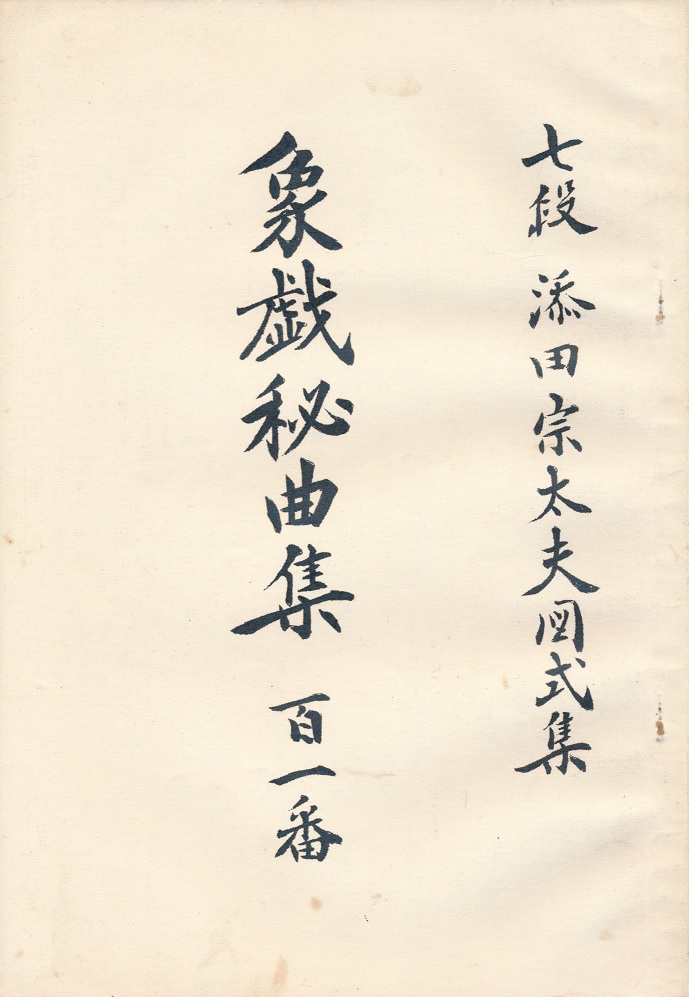 七段 添田宗太夫図式集
象戯秘曲集 百一番